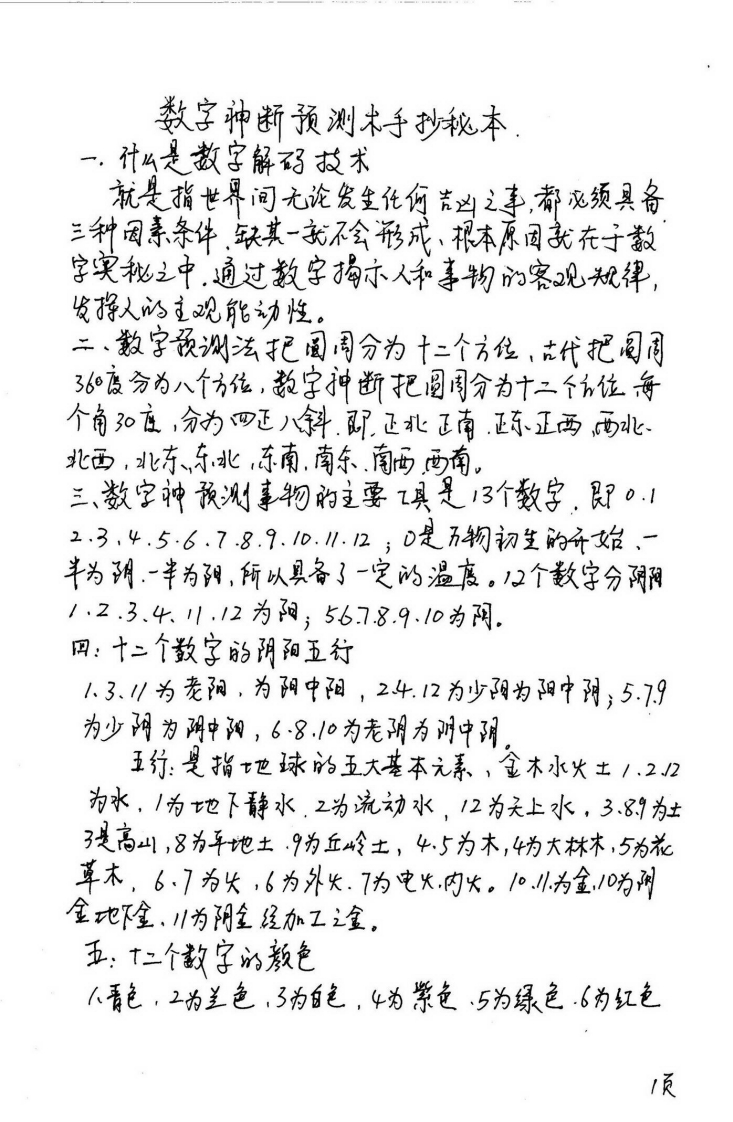 数字神断预测术手抄秘本.
一. 什么是数字解码技术
就是指世界间无论发生任何吉凶之事,都必须具备
三种因素条件.缺其一就不会形成、根本原因就在于数
字奥秘之中.通过数字揭示人和事物的客观规律,
发挥人的主观能动性。
二、数字预测法把圆周分为十二个方位,古代把圆周
360度分为八个方位,数字神断把圆周分为十二个方位.每
个角30度,分为四正八斜.即.正北正南.正东正西.西北、
北西,北东、东北,东南,南东.南西.西南。
三、数字神预测事物的主要工具是13个数字.即0.1
2.3.4.5.6.7.8.9.10.11.12;0是万物初生的开始、一
半为阴.一半为阳,所以具备了一定的温度。12个数字分阴阳
1.2.3.4、11.12为阳;5.6.7.8.9.10为阴。
四:十二个数字的阴阳五行
1.3.11为老阳.为阳中阳,2.4.12为少阳为阳中阴;5.7.9
为少阴为阴中阳,6.8.10为老阴为阴中阴。
五行:是指地球的五大基本元素、金木水火土1.2.12
为水,1为地下静水.2为流动水,12为天上水,3.8.9为土
3是高山,8为平地土.9为丘岭土,4.5为木,4为大林木,5为花
草木,6.7为火,6为外火.7为电火.内火。10.11.为金,10为阴
金地下金,11为阳金经加工之金。
五:十二个数字的颜色
1.青色,2为兰色,3为白色,4为紫色.5为绿色.6为红色
1页